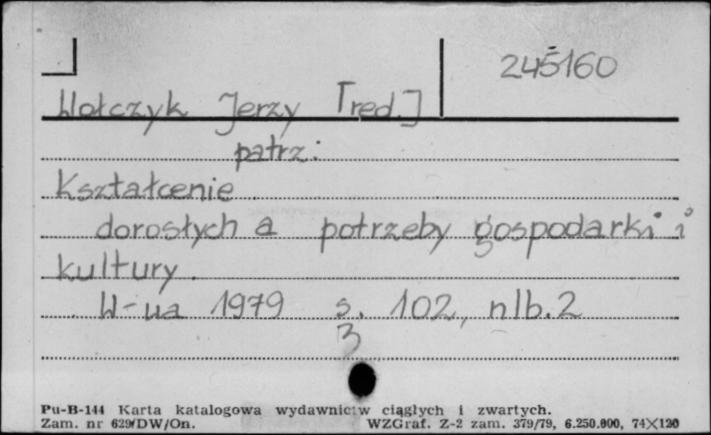 245160
Wołczyk Jerzy [red.]
patrz:
Kształcenie
dorosłych a potrzeby gospodarki i
kultury.
W-wa 1979 s. 102, nlb. 2
3
Pu-B-144 Karta katalogowa wydawnictw ciągłych i zwartych.
Zam. nr 629/DW/On. WZGraf. Z-2 zam. 379/79, 6.250.000, 74X120